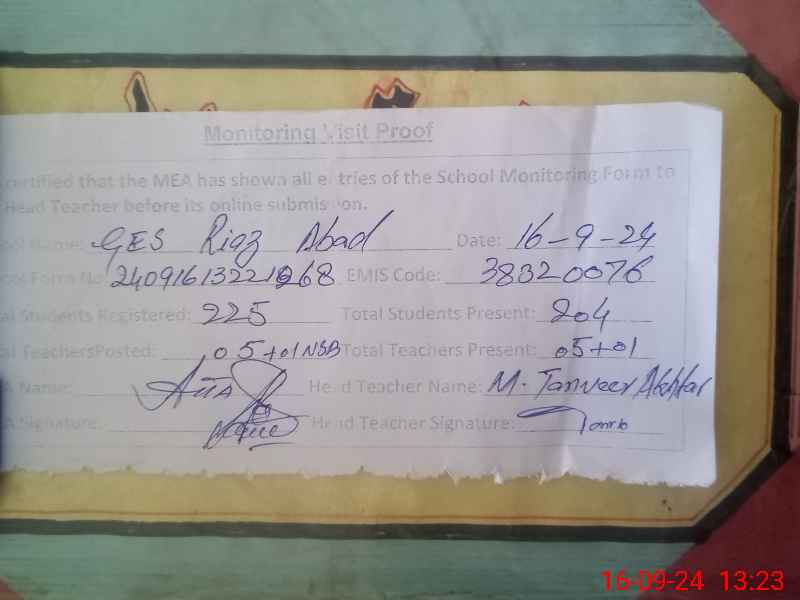 Monitoring Visit Proof
certified that the MEA has shown all entries of the School Monitoring Form to
Head Teacher before its online submission.
ool Name: GES Riaz Abad Date: 16-9-24
ool Form No EMIS Code: 38320076
al Students Registered: 225 Total Students Present: 204
al TeachersPosted: 05+01 NSB Total Teachers Present: 05+01
A Name: Head Teacher Name: M. Tanveer Akhtar
A Signature: Head Teacher Signature:
16-09-24 13:23